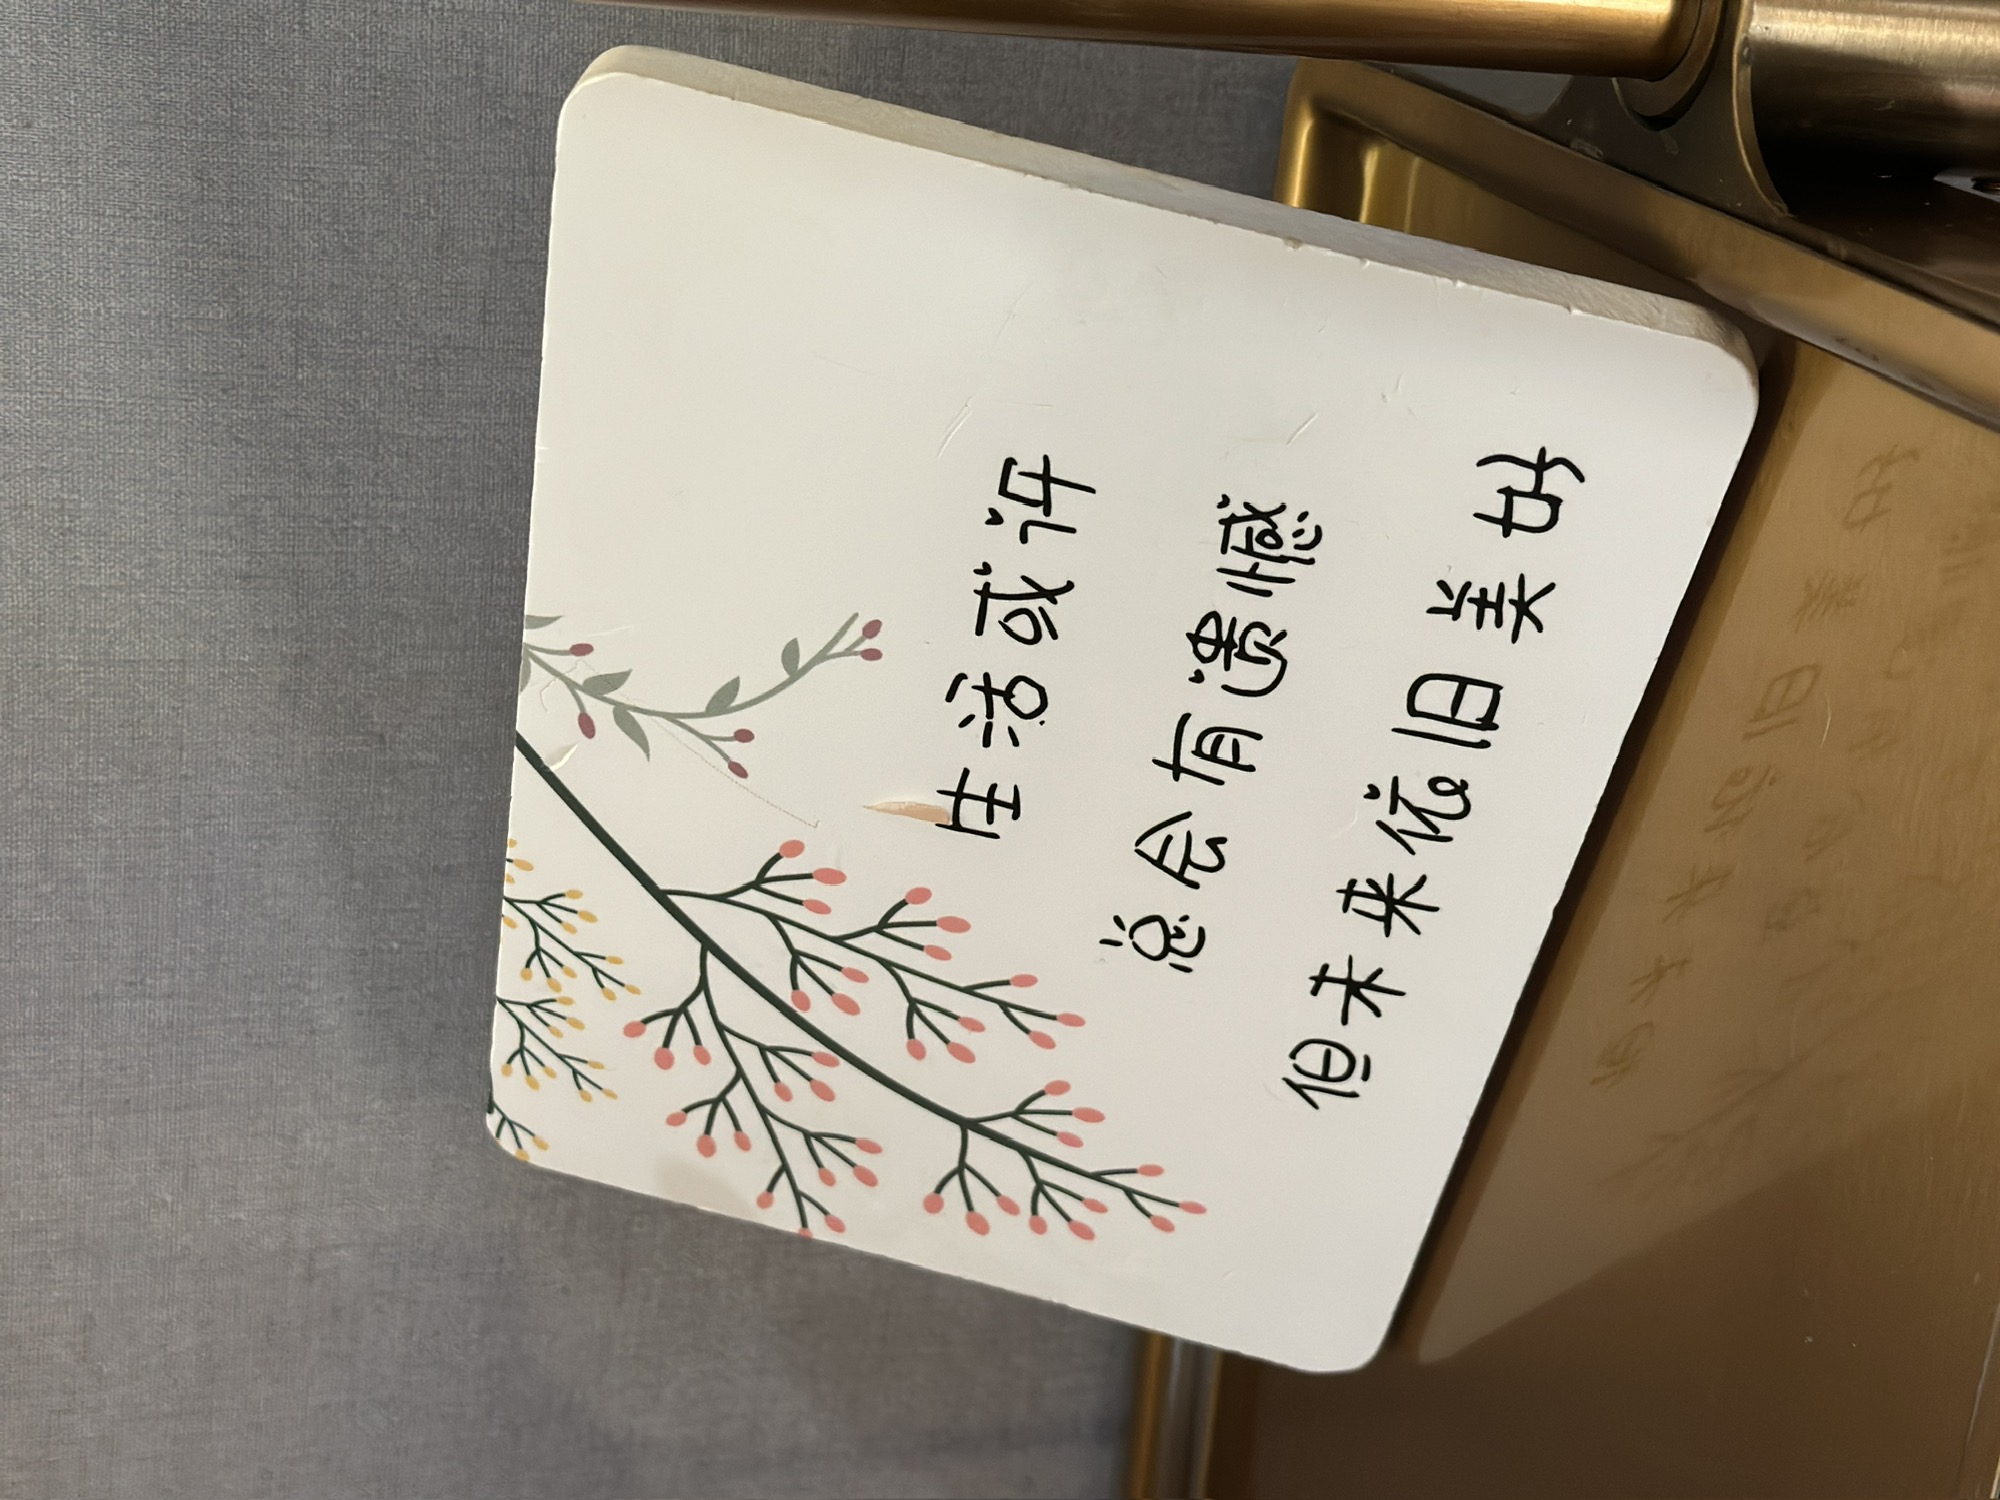 生活或许
总会有遗憾
但未来依旧美好